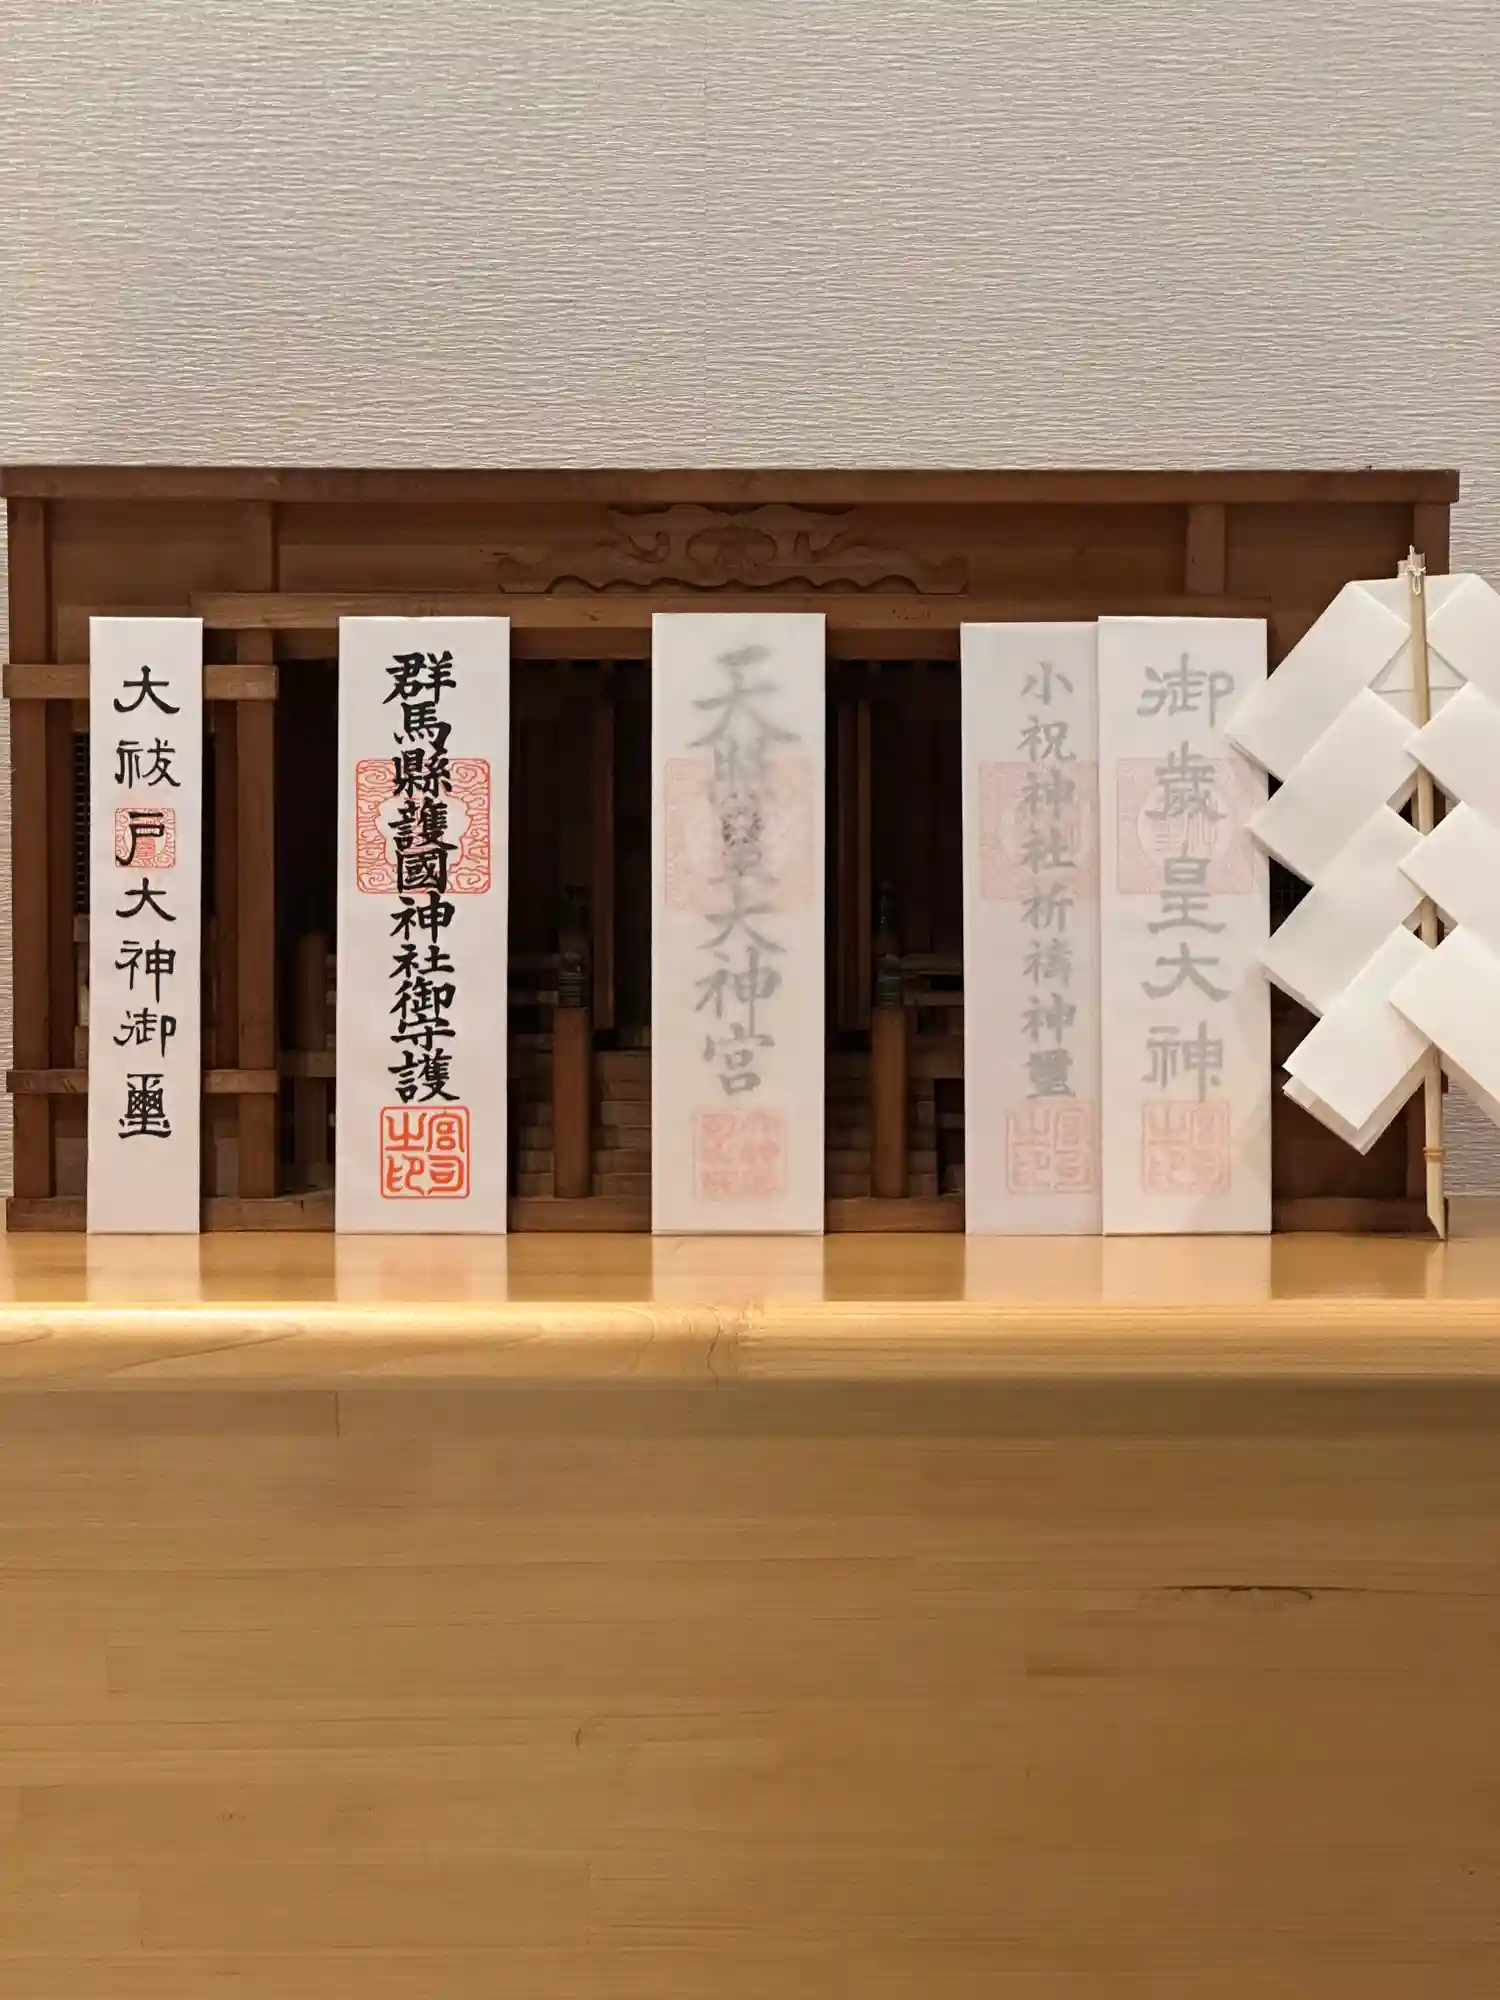 大祓戸大神御璽
群馬縣護國神社御守護
宮司之印
天照皇大神宮
小祝神社祈祷神璽
御歳皇大神